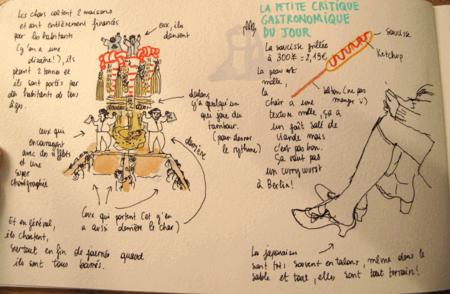 Les chars coûtent 2 maisons
et sont entièrement financés
par les habitants
(y'en a une
dizaine!), ils
pèsent 2 tonnes et
ils sont portés par
des habitants de tous
âges.
eux, ils
dansent
dedans
y'a quelqu'un
qui joue du
tambour.
(pour donner
le rythme)
ceux qui
encouragent
avec des sifflets
et une
super
chorégraphie
derrière
Ceux qui portent (et y'en
a aussi derrière le char)
Et en général,
ils chantent,
surtout en fin de journée quand
ils sont tous bourrés.
LA PETITE CRITIQUE
GASTRONOMIQUE
DU JOUR
La saucisse grillée
à 300¥ = 2,19€
La peau est
molle,
la
chair a une
texture molle, ça a
un goût salé de
viande mais
c'est pas bon.
Ça vaut pas
un currywurst
à Berlin!
saucisse
Ketchup
bâton (ne pas
manger !)
Les japonaises
sont très souvent en talons, même dans le
sable et tout, elles sont tout terrain!